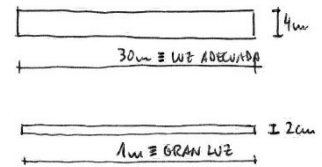 4m
30m ≡ LUZ ADECUADA
2cm
1m ≡ GRAN LUZ